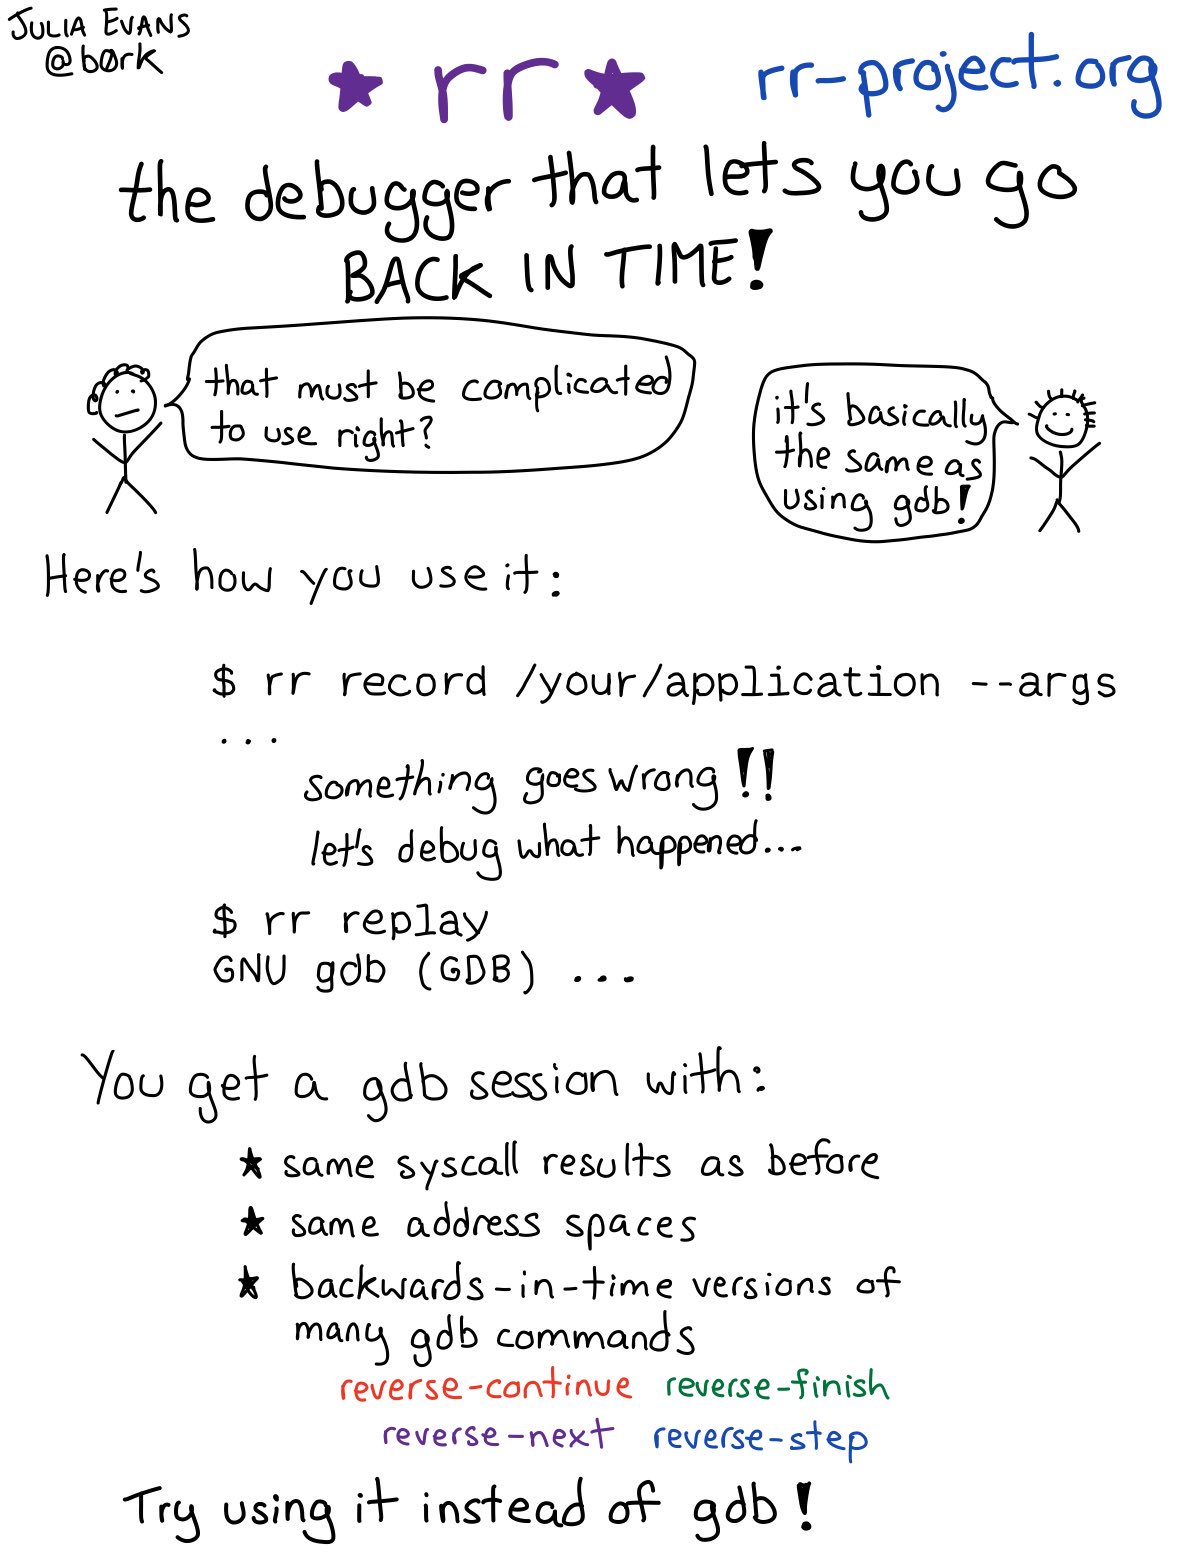 JULIA EVANS
@b0rk
★ rr ★
rr-project.org
the debugger that lets you go
BACK IN TIME!
that must be complicated
to use right?
it's basically
the same as
using gdb!
Here's how you use it:
$ rr record /your/application --args
...
something goes wrong!!
let's debug what happened...
$ rr replay
GNU gdb (GDB) ...
You get a gdb session with:
★ same syscall results as before
★ same address spaces
★ backwards-in-time versions of
many gdb commands
reverse-continue reverse-finish
reverse-next reverse-step
Try using it instead of gdb!